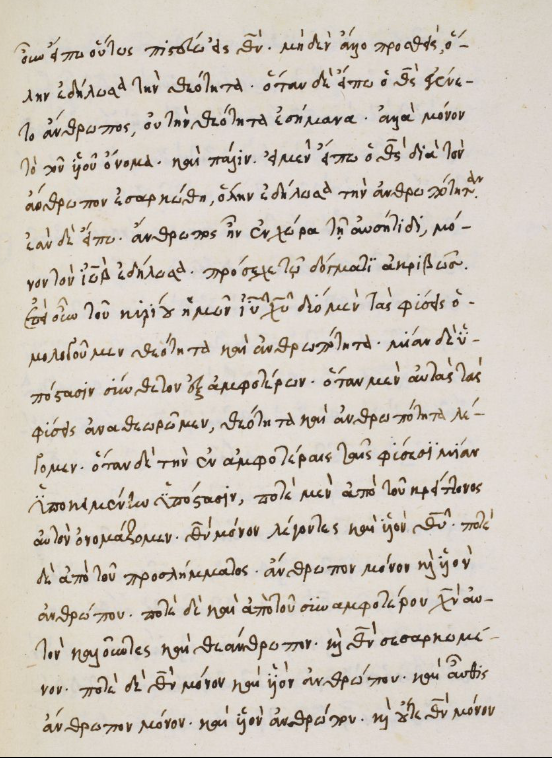 εἴπω οὕτως πιστεύω εἰς θν̄. μηδὲν ἄλλο προσθεὶς, ὅ-
λην ἐδήλωσα τὴν θεότητα. ὅταν δὲ εἴπω ὁ θς̄ ἐγένε-
το ἄνθρωπος, οὐ τὴν θεότητα ἐσήμανα. ἀλλὰ μόνον
τὸ ὄνομα. καὶ πάλιν. εἰ μὲν εἴπω ὁ θς̄ διὰ τὸν
ἄνθρωπον ἐσαρκώθη, ὅλην ἐδήλωσα τὴν ἀνθρωπότητα.
ἐὰν δὲ εἴπω. ἄνθρωπος ἦν ἐν χώρα τῇ αὐσήτιδι, μό-
νον τὸν ἰὼβ ἐδήλωσα. πρόσεχε τῷ δόγματι ἀκριβῶς.
ἐπὶ οὖν τοῦ κυρίου ἡμῶν ιῡ χῡ δύο μὲν τὰς φύσεις ὁ-
μολογοῦμεν θεότητα καὶ ἀνθρωπότητα. μίαν δὲ ὑ-
πόστασιν σύνθετον ἐξ ἀμφοτέρων. ὅταν μὲν αὐτὰς τὰς
φύσεις ἀναθεωροῦμεν, θεότητα καὶ ἀνθρωπότητα λέ-
γομεν. ὅταν δὲ τὴν ἐν ἀμφοτέραις ταῖς φύσεσϊ μίαν
ὑποκειμένην ὑπόστασιν, ποτὲ μὲν ἀπὸ τοῦ κρείττονος
αὐτὸν ὀνομάζομεν. θν̄ μόνον λέγοντες καὶ υἱὸν θῡ. ποτὲ
δὲ ἀπὸ τοῦ προσλήμματος. ἄνθρωπον μόνον καὶ υἱὸν
ἀνθρώπου. ποτὲ δὲ καὶ ἀπὸ τοῦ συναμφοτέρου χν̄ αὐ-
τὸν καλοῦντες καὶ θεάνθρωπον. καὶ θν̄ σεσαρκωμέ-
νον. ποτὲ δὲ θν̄ μόνον καὶ υἱὸν ἀνθρώπου. καὶ αὖθις
ἄνθρωπον μόνον. καὶ υἱὸν ἀνθρώπου. καὶ οὔτε θν̄ μόνον